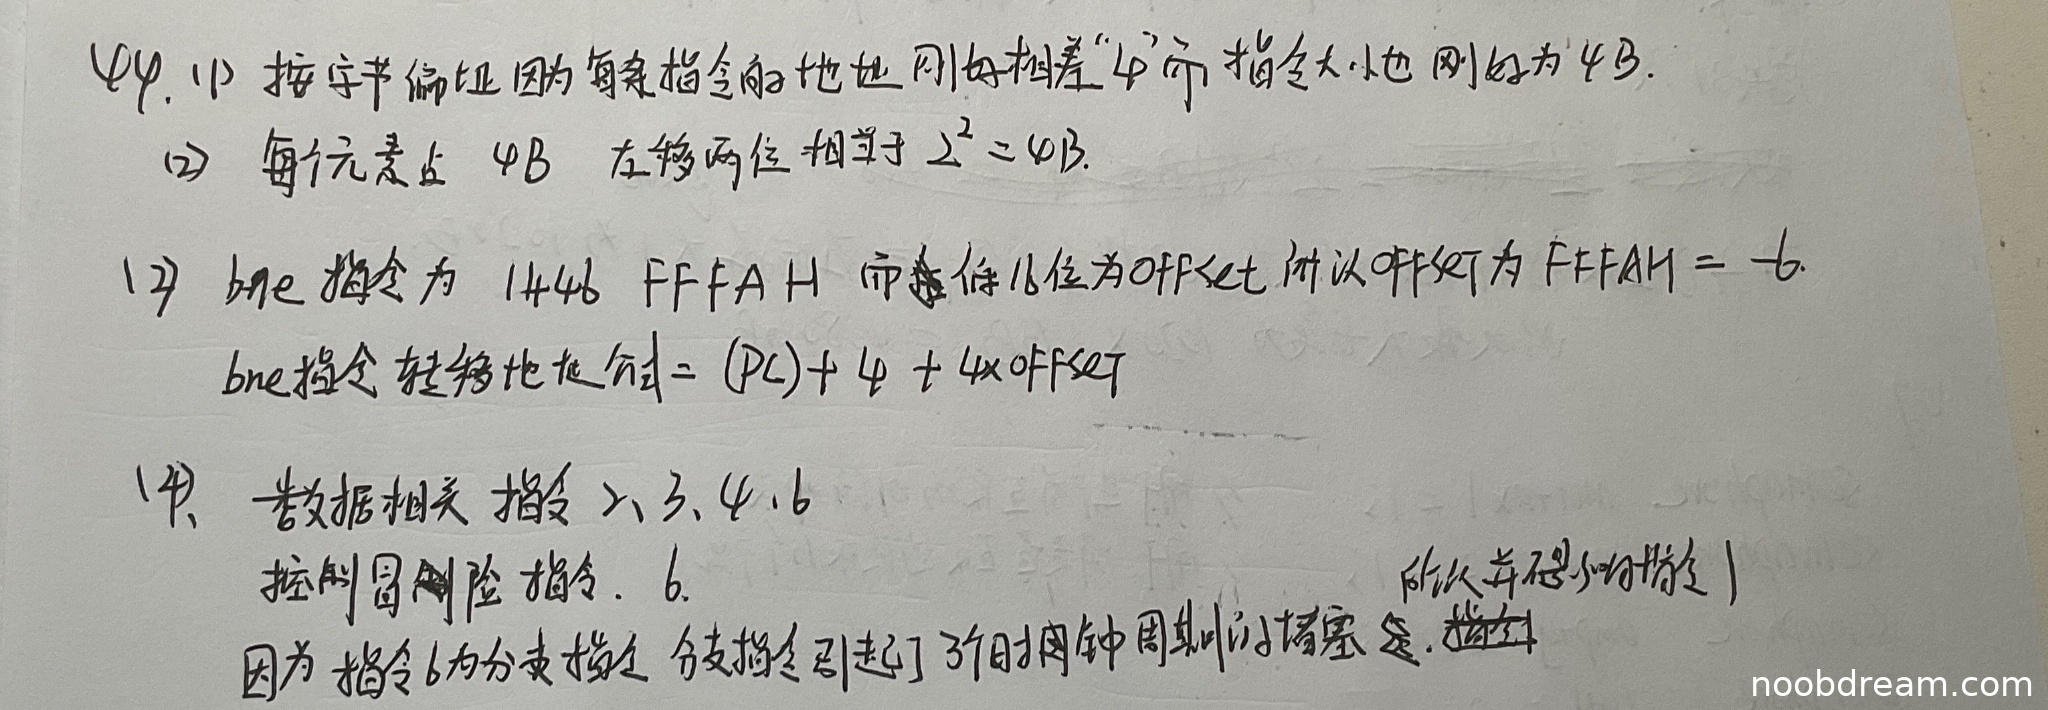 44. (1) 按字节编址因为每条指令的地址刚好相差“4”而指令大小也刚好为4B.
(2) 每个元素占 4B 左移两位相当于 2² = 4B.
(3) bne指令为 1446 FFFAH 而低16位为OFFSet 所以OFFSET为FFFAH = -6.
bne指令转移地址公式 = (PC) + 4 + 4×OFFSET
(4)、数据相关 指令 2、3、4、6
控制冒险指令. 6.
因为指令6为分支指令 分支指令引起了3个时钟周期的堵塞 所以并不影响指令1
noobdream.com